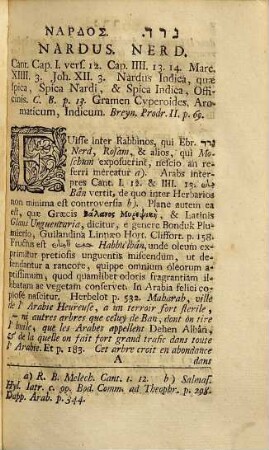 ΝΑΡΔΟΣ. נרד.
NARDUS. NERD.
Cant. Cap. I. vers. 12. Cap. IIII. 13. 14. Marc.
XIIII. 3. Joh. XII. 3. Nardus Indica, quæ
spica, Spica Nardi, & Spica Indica, Offi-
cinis. C. B. p. 13. Gramen Cyperoides, Aro-
maticum, Indicum. Breyn. Prodr. II. p. 69.
Uisse inter Rabbinos, qui Ebr. נרד
Nerd, Rosam, & alios, qui Mo-
schum exposuerint, nescio an re-
ferri mereatur a). Arabs inter-
pres Cant. I. 12. & IIII. 13.
Ban vertit, de quo inter Herbarios
non minima est controversia b). Plane autem ex
est, quæ Græcis Βάλανος Μυρεψική, & Latinis
Glans Unguentaria, dicitur, e genere Bonduk Plu-
mierii; Guilandina Linnæo Hort. Cliffort. p. 158.
Fructus est حب البان Habbolbân, unde oleum ex-
primitur pretiosis unguentis miscendum, ut de-
fendantur a rancore, quippe omnium oleorum a-
ptissimum, quod quamlibet odoris fragrantiam il-
libatam ac vegetam conservet. In Arabia felici co-
piose nascitur. Herbelot p. 532. Maharab, ville
de l' Arabie Heureuse, a un terroir fort sterile,
— ni autres arbres que celuy de Bau, dont on tire
l'huile, que les Arabes appellent Dehen Alban,
& de la quelle on fait fort grand trafic dans toute
l' Arabie. Et p. 183. Cet arbre croit en abondance
A dans
a) R. B. Melech. Cant. 1. 12. b) Salmas.
Hyl. Iatr. c. 99. Bod. Comm. ad Theophr. p. 298.
Dapp. Arab. p. 344.